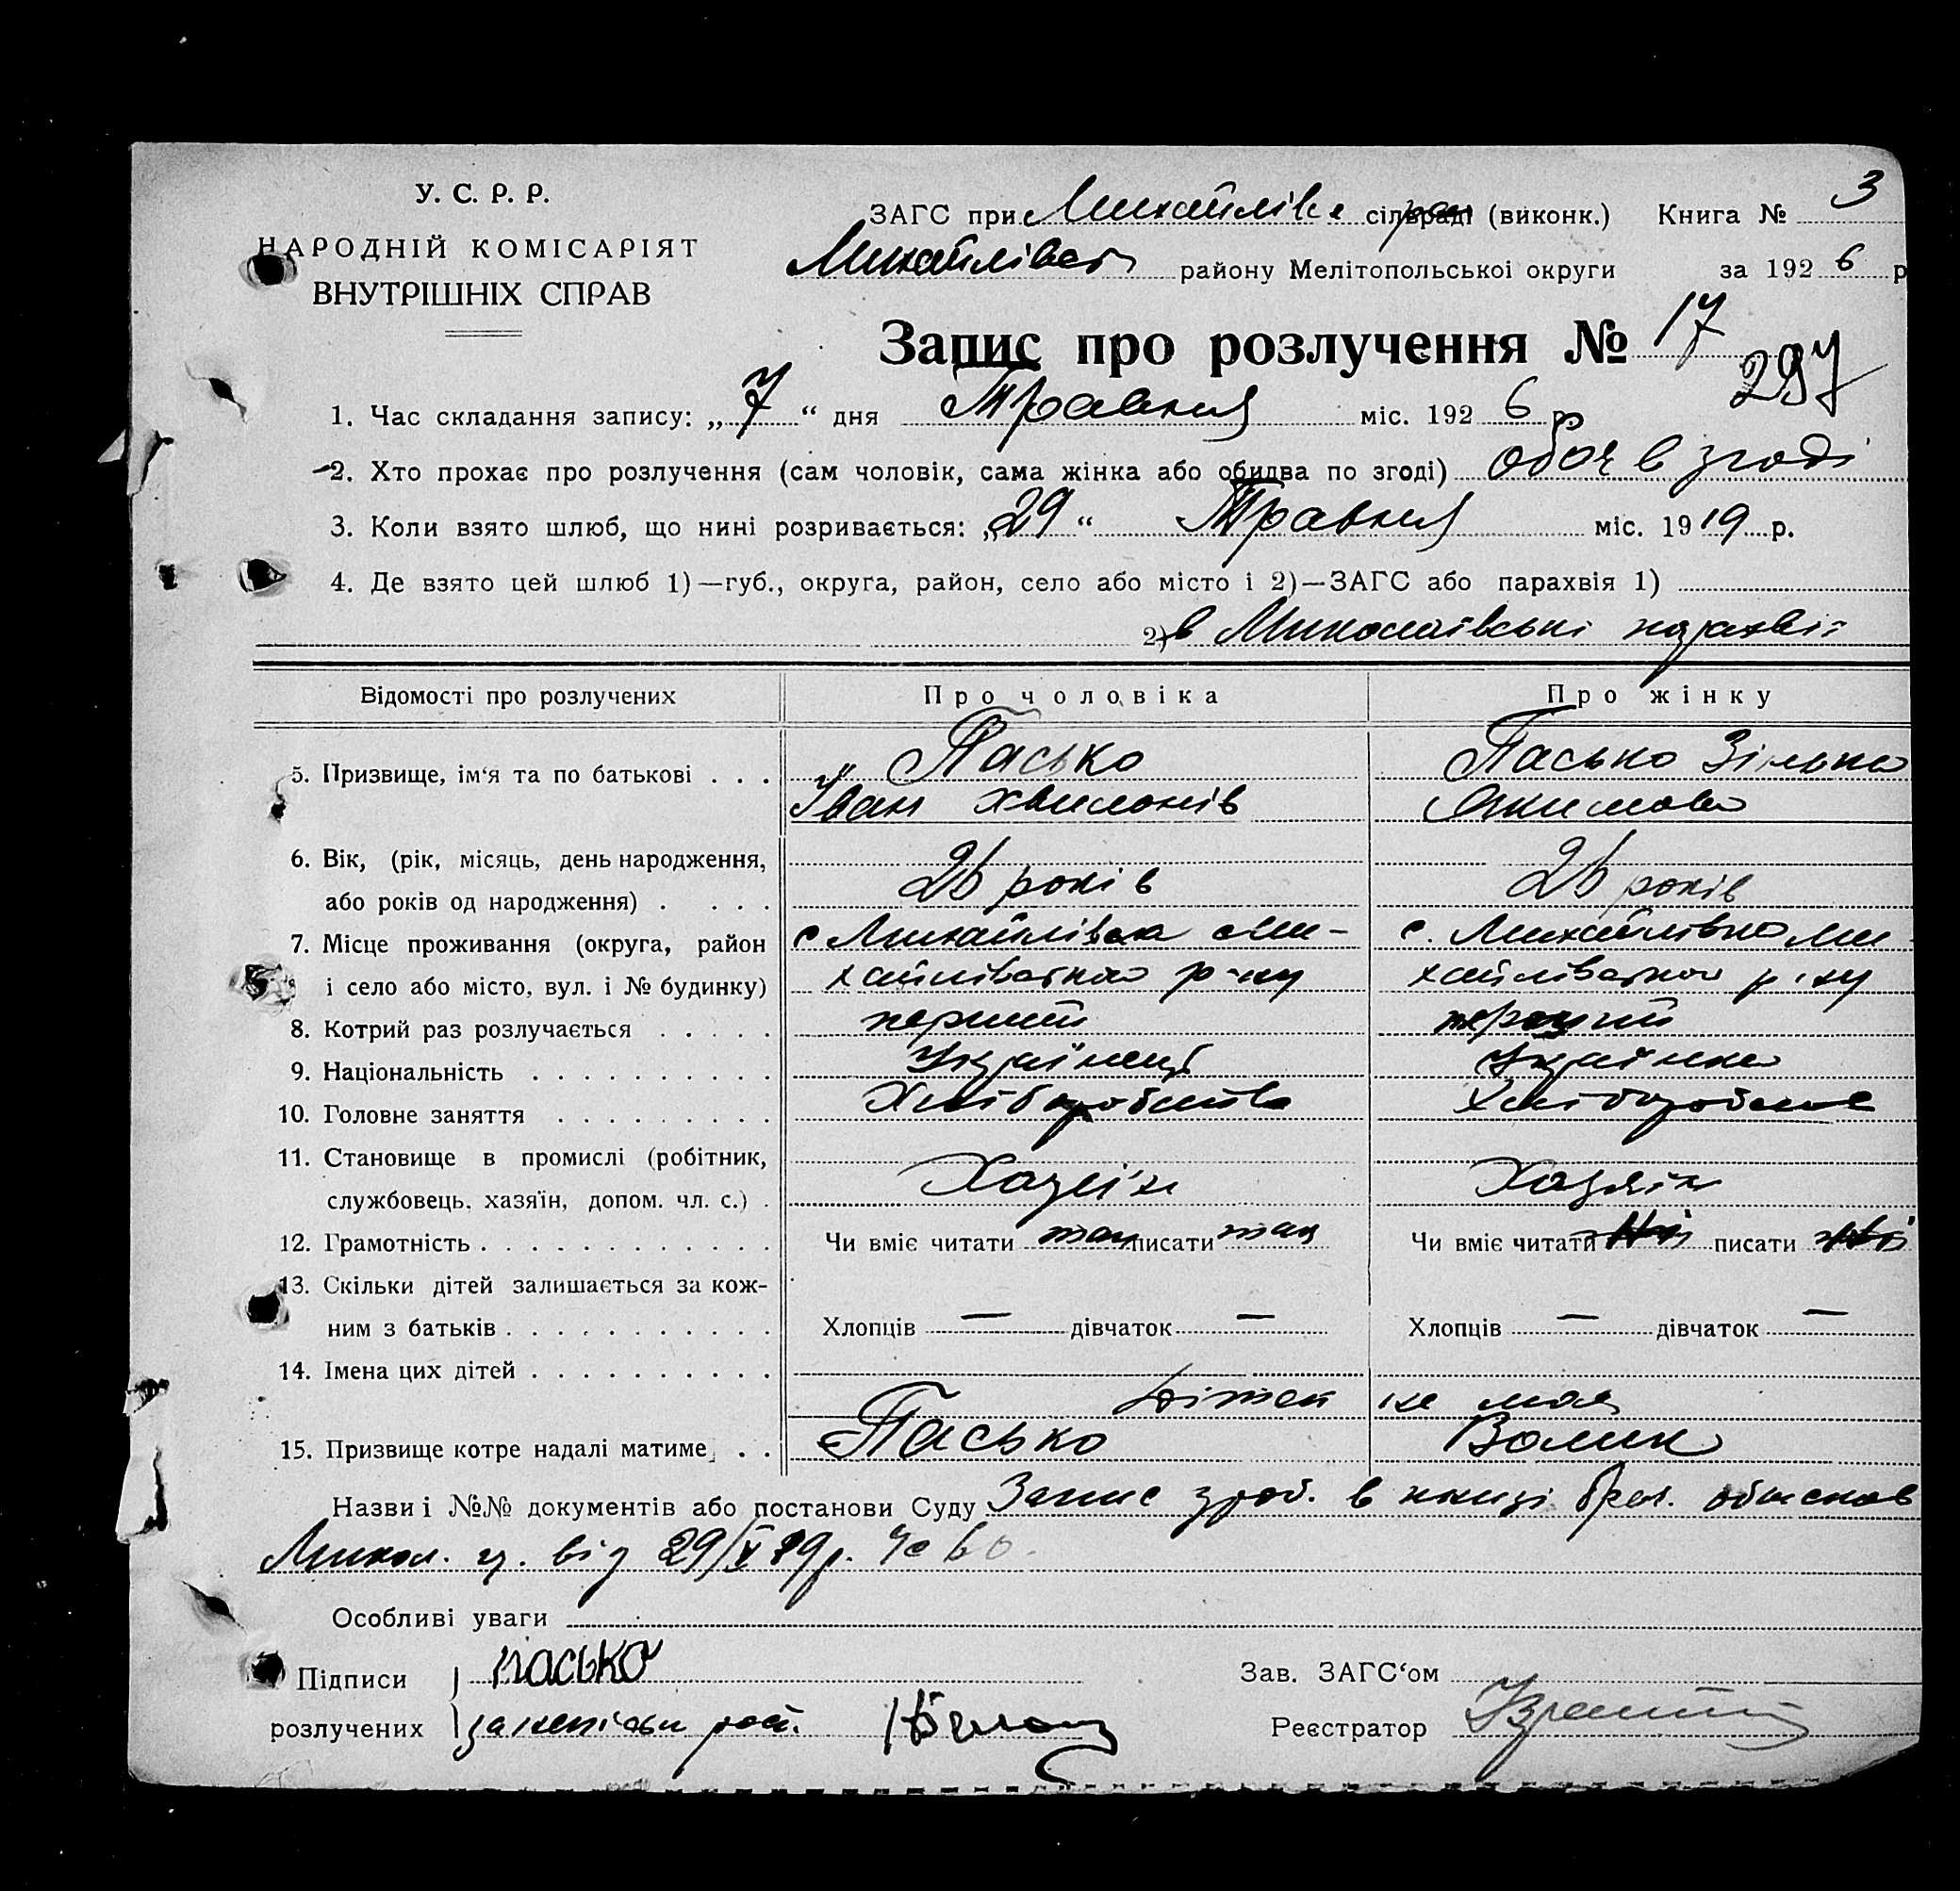 У. С. Р. Р.
НАРОДНІЙ КОМІСАРІЯТ
ВНУТРІШНІХ СПРАВ
ЗАГС при Михайлівс сільраді (виконк.) Книга № 3
Михайлівськ району Мелітопольської округи за 1926 р
Запис про розлучення № 17
297
1. Час складання запису: „7“ дня Травня міс. 1926 р.
2. Хто прохає про розлучення (сам чоловік, сама жінка або обидва по згоді) обоє в згоді
3. Коли взято шлюб, що нині розривається: „29“ Травня міс. 1919 р.
4. Де взято цей шлюб 1)—губ., округа, район, село або місто і 2)—ЗАГС або парахвія 1)
2) в Миколаївські парахвії
Відомості про розлучених Про чоловіка Про жінку
5. Призвище, ім‘я та по батькові . . . Пасько Пасько Зінька
Іван Хвилонів Якимова
6. Вік, (рік, місяць, день народження,
або років од народження) . . . . 26 років 26 років
7. Місце проживання (округа, район с Михайлівка Ми- с. Михайлівка Ми-
і село або місто, вул. і № будинку) хайлівського р-ну хайлівського р-ну
8. Котрий раз розлучається . . . . . перший перший
9. Національність . . . . . . . . . . Українець Українка
10. Головне заняття . . . . . . . . . Хліборобство Хліборобство
11. Становище в промислі (робітник,
службовець, хазяїн, допом. чл. с.) . Хазяїн Хазяїн
12. Грамотність . . . . . . . . . . . . Чи вміє читати так писати так Чи вміє читати ні писати ні
13. Скільки дітей залишається за кож-
ним з батьків . . . . . . . . . . . Хлопців — дівчаток — Хлопців — дівчаток —
14. Імена цих дітей . . . . . . . . . .
Дітей не має
15. Призвище котре надалі матиме . . Пасько Волик
Назви і №№ документів або постанови Суду Запис зроб. в книзі брач. обисков
Микол. ц. від 29/V 19р. № 60.
Особливі уваги
Підписи Пасько Зав. ЗАГС‘ом
розлучених Реєстратор